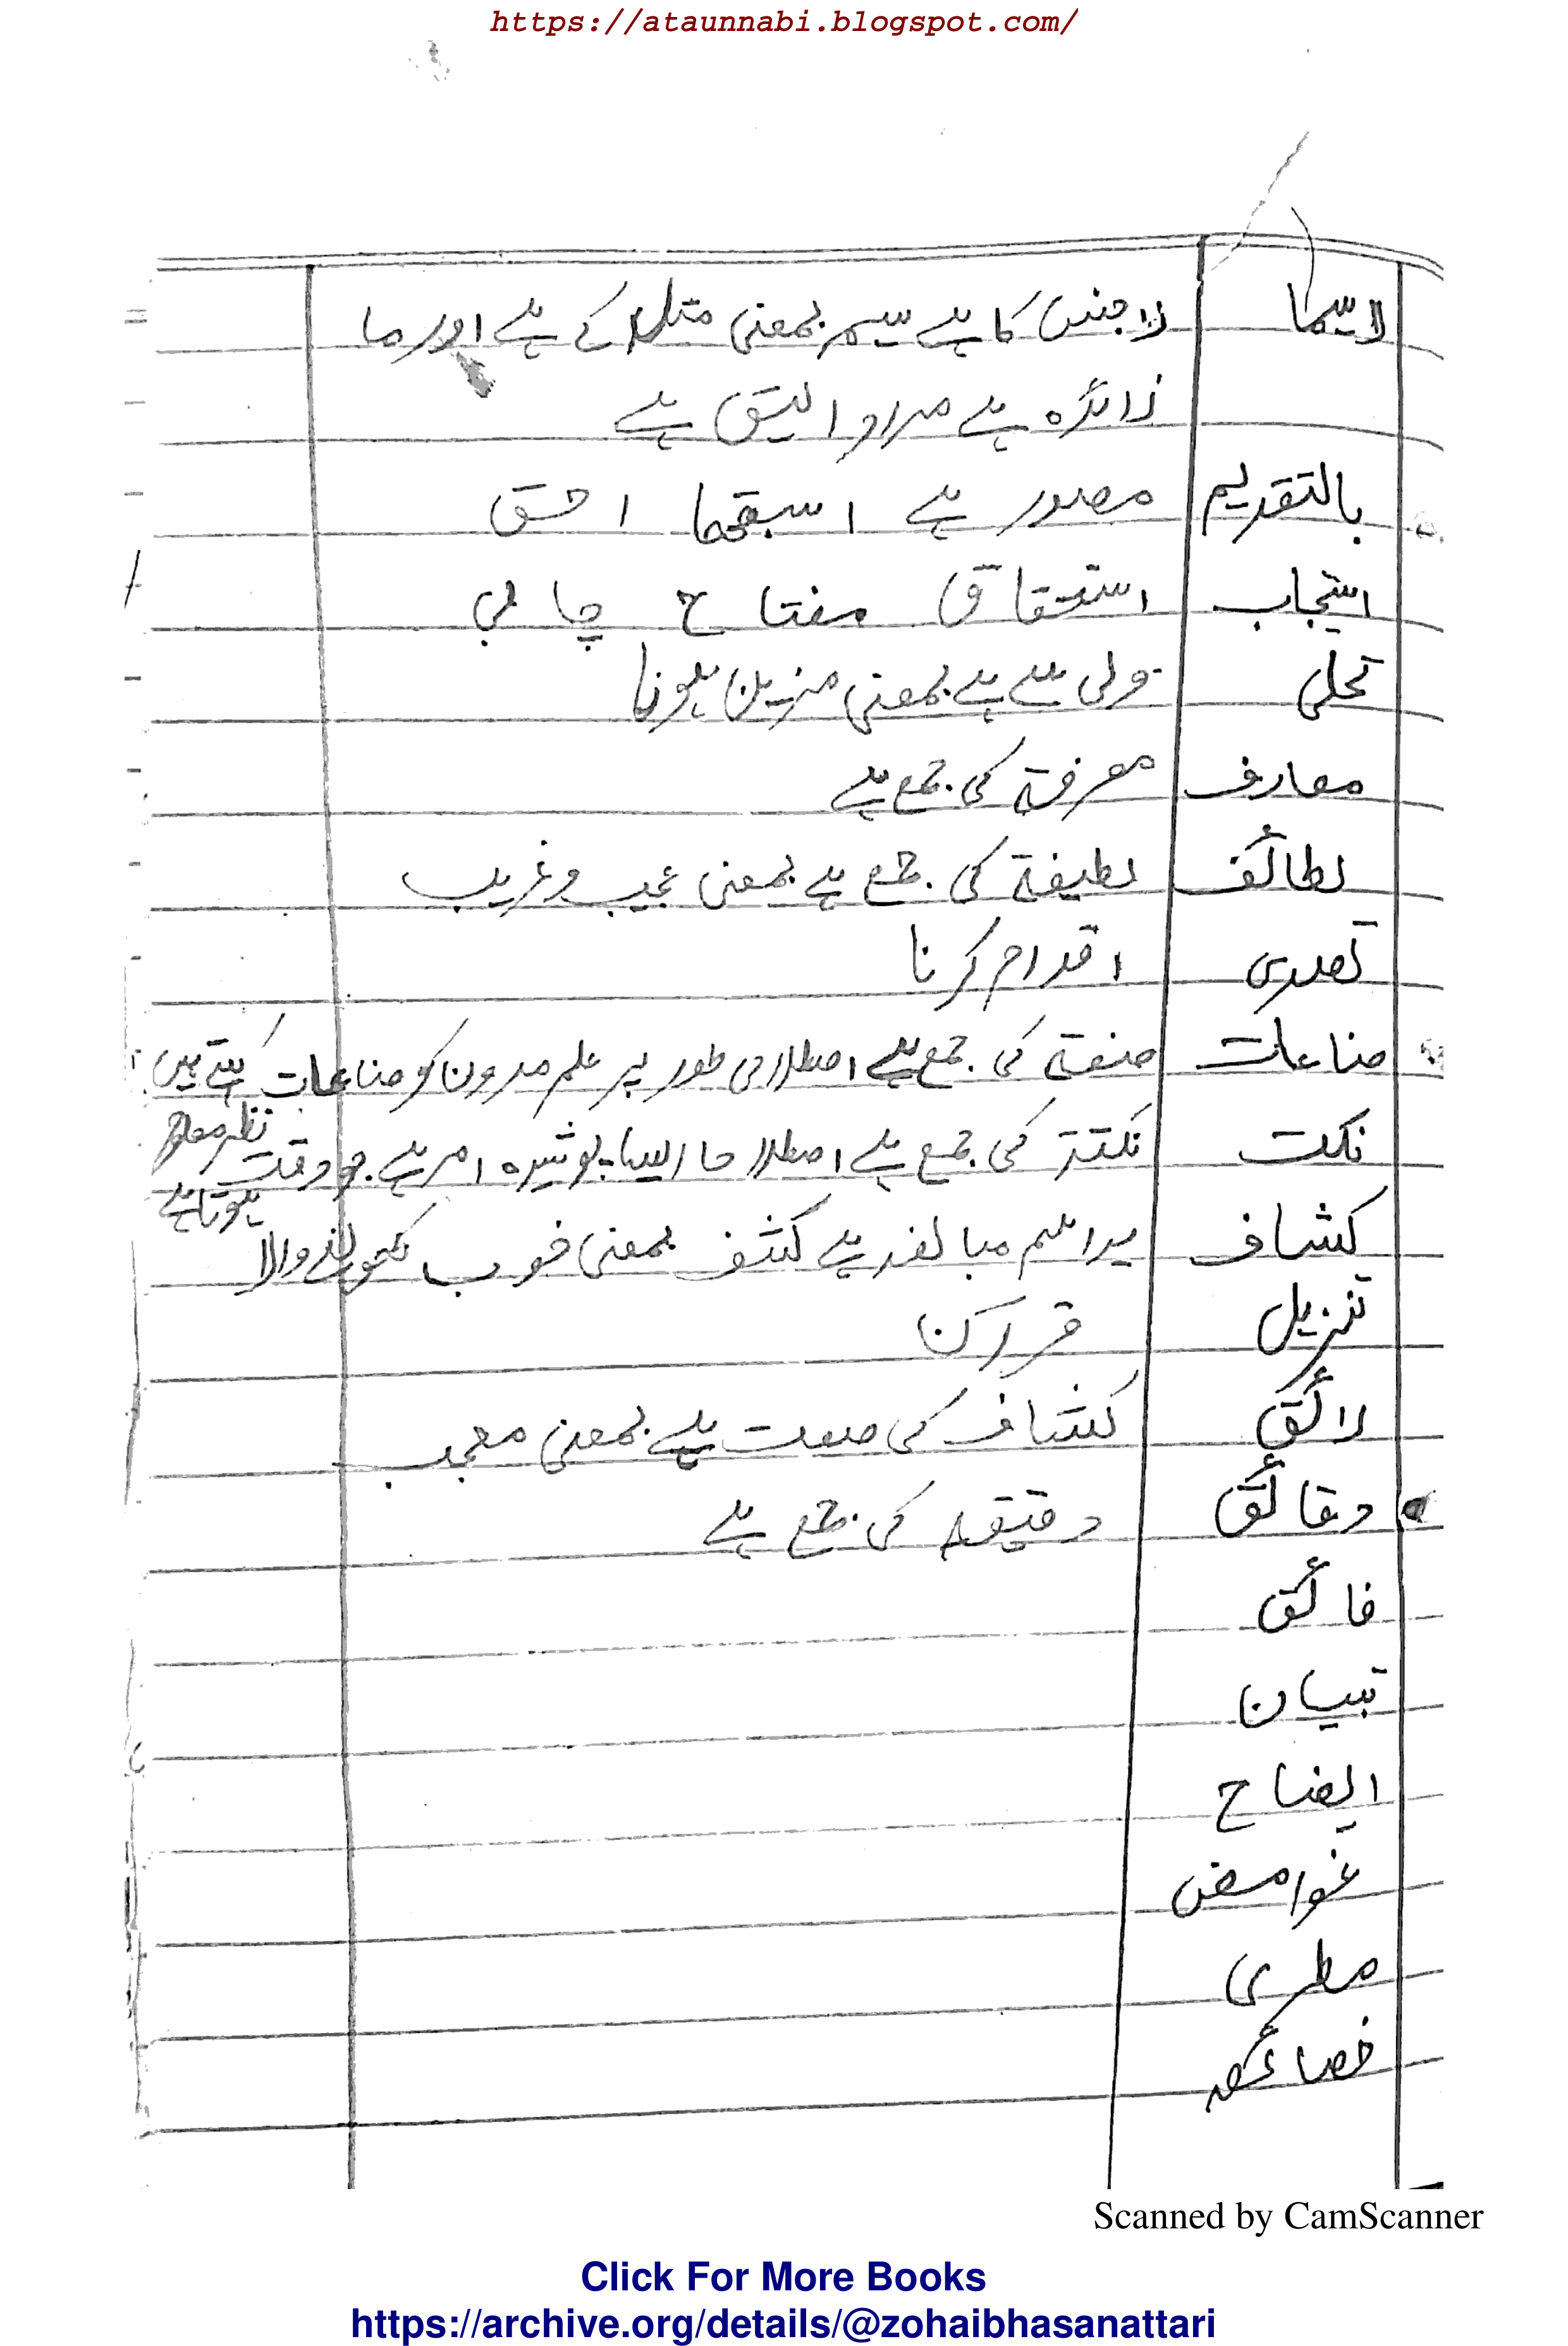 https://ataunnabi.blogspot.com/
لاسیّما لا جنس کا ہے سیم بمعنی مثل کے ہے اور ما
زائدہ ہے مراد الیق ہے
بالتقدیم مصدر ہے اسبقھا احق
استحقاق مفتاح چابی
تحلی بمعنی مزین ہونا
معارف معرفۃ کی جمع ہے
لطائف لطیفۃ کی جمع ہے بمعنی عجیب و غریب
تصدی اقدام کرنا
صناعات صنعۃ کی جمع ہے اصطلاحی طور پر علم مدون کو صناعات کہتے ہیں
نکت نکتۃ کی جمع ہے اصطلاحا ایسا پوشیدہ امر ہے جو دقت نظر معلوم
ہوتا ہے
کشاف اسم مبالغہ ہے کشف بمعنی خوب کھولنے والا
تنزیل قرآن
رائق کشاف کی صفت ہے بمعنی معجب
دقائق دقیقہ کی جمع ہے
فائق
تبیان
ایضاح
غوامض
مطری
خصائص
Scanned by CamScanner
Click For More Books
https://archive.org/details/@zohaibhasanattari